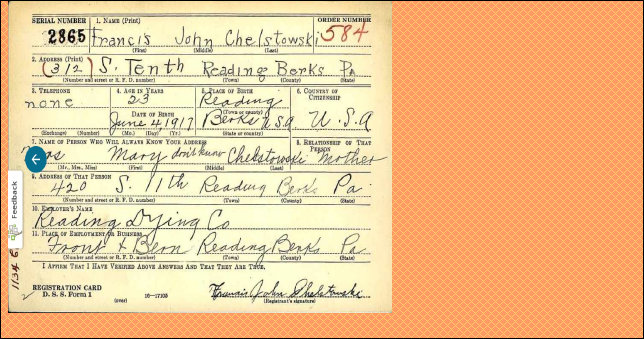 SERIAL NUMBER 1. NAME (Print) ORDER NUMBER
2865 Francis John Chelstowski 584
(First) (Middle) (Last)
2. ADDRESS (Print)
(312) S. Tenth Reading Berks Pa
(Number and street or R. F. D. number) (Town) (County) (State)
3. TELEPHONE 4. AGE IN YEARS 5. PLACE OF BIRTH 6. COUNTRY OF CITIZENSHIP
none 23 Reading
(Town or county)
DATE OF BIRTH
June 4, 1917 Berks U.S.A. U.S.A
(Exchange) (Number) (Mo.) (Day) (Yr.) (State or country)
7. NAME OF PERSON WHO WILL ALWAYS KNOW YOUR ADDRESS 8. RELATIONSHIP OF THAT PERSON
Mary don't know Chelstowski Mother
(Mr., Mrs., Miss) (First) (Middle) (Last)
9. ADDRESS OF THAT PERSON
420 S. 11th Reading Berks Pa.
(Number and street or R. F. D. number) (Town) (County) (State)
10. EMPLOYER'S NAME
Reading Dying Co
11. PLACE OF EMPLOYMENT OR BUSINESS
Front & Bern Reading Berks Pa.
(Number and street or R. F. D. number) (Town) (County) (State)
I AFFIRM THAT I HAVE VERIFIED ABOVE ANSWERS AND THAT THEY ARE TRUE.
REGISTRATION CARD
D. S. S. Form 1 (over) 16—17105 Francis John Chelstowski
(Registrant's signature)
Feedback